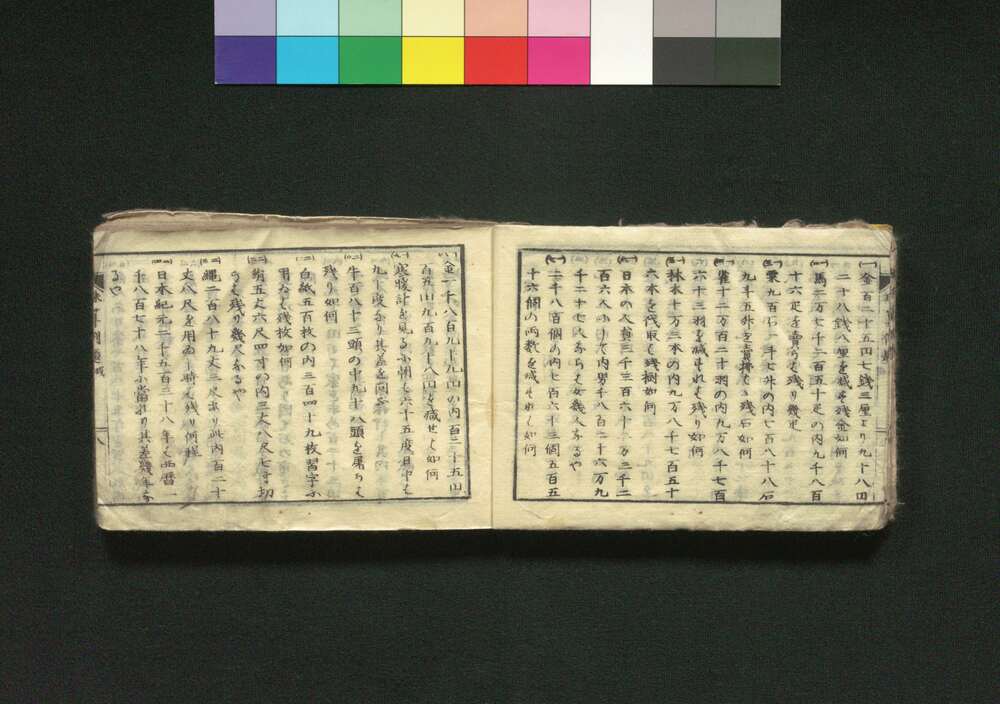 金百二十五円七銭三厘より九十八円
二十八銭八厘を減せば残金如何
馬二万七千二百五十疋の内九千八百
十六疋を賣は残り幾疋
粟九百石一斗七升の内七百八十八石
九斗五升を賣拂は残石如何
雀十二万百二十羽の内九万八千七百
六十三羽を減せば残り如何
林木十万三本の内九万八千七百五十
六本を伐取は残樹如何
日本の人員三千三百六十一万三千二
百六人にして内男千八百二十六万九
千二十七人なりとは女幾人なるや
二千八百個の内七百六十三個五百五
十六個の両数を減すれば如何
金二千八百九十九円の内百二十五円
百五円九百九十八円を減せば如何
寒暖計を見るに朝は六十五度日中は
九十度なり其差を問ふ
牛百八十三頭の中九十八頭を屠らは
残り如何
白紙五百枚の内三百四十九枚習字に
用ゐは残枚如何
絹五丈六尺四寸の内三丈八尺七寸切
は残り幾尺なるや
縄二百八十九丈三尺あり此内百二十
丈八尺を用ゐ残り何程
日本紀元二千五百三十八年は西暦一
千八百七十八年に當れり其差幾年な
るや